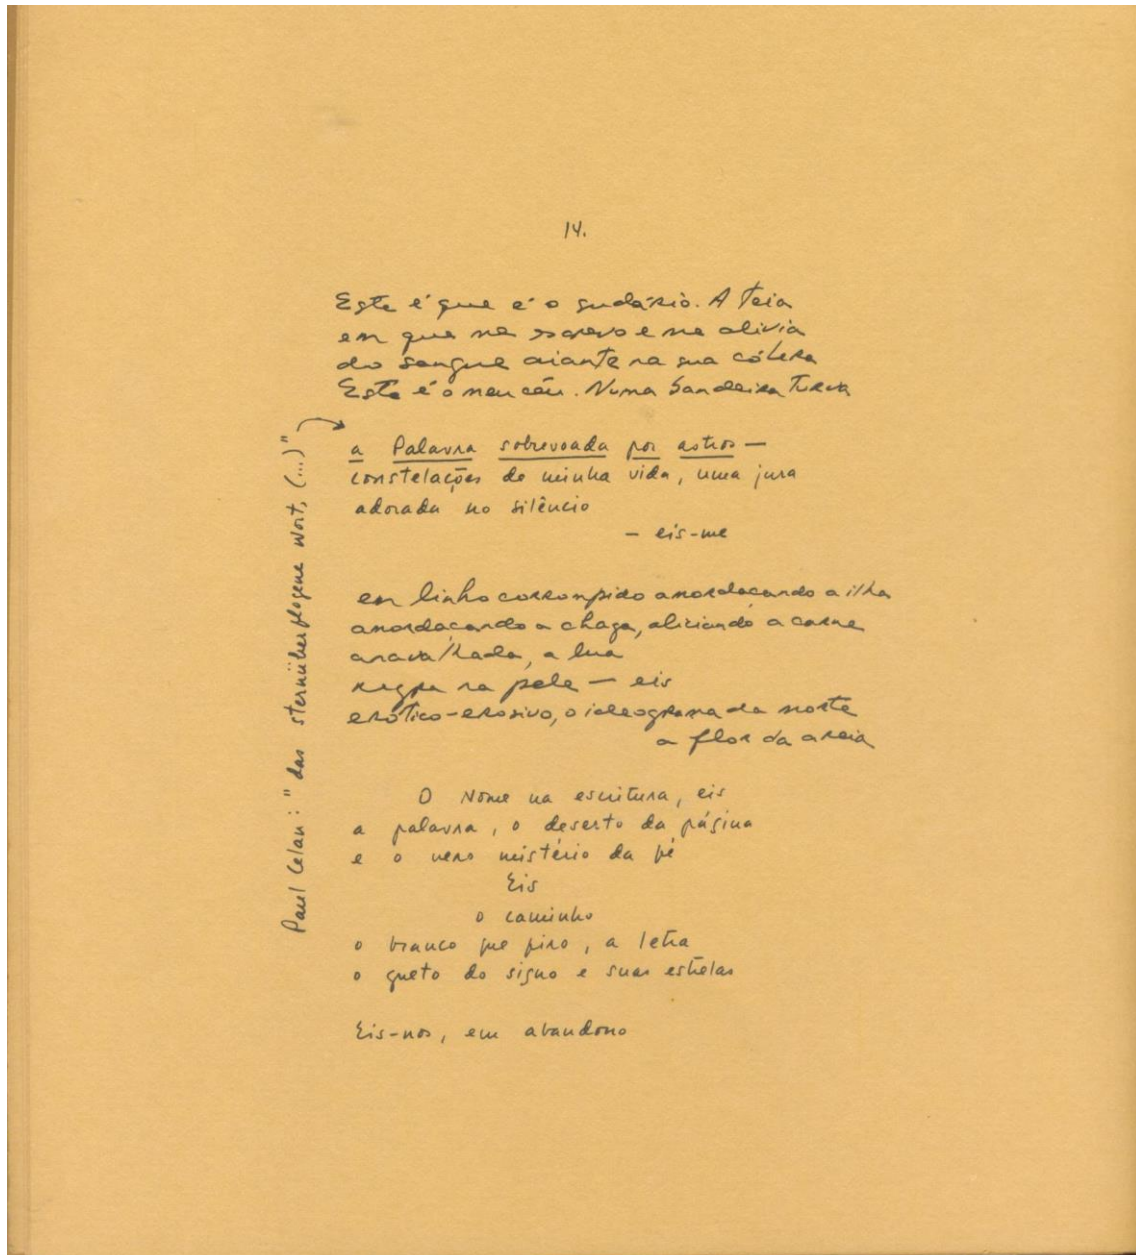 14.
Este é que é o sudário. A teia
em que me escrevo e me alivia
do sangue ciante na sua cólera
Este é o meu céu. Numa bandeira turva
a Palavra sobrevoada por astros —
constelações de minha vida, uma jura
adorada no silêncio
— eis-me
em linho corrompido amordaçando a ilha
amordaçando a chaga, aliciando a carne
anavalhada, a lua
negra na pele — eis
erótico-erosivo, o ideograma da morte
a flor da areia
O Nome na escritura, eis
a palavra, o deserto da página
e o vero mistério da fé
Eis
o caminho
o branco que piso, a letra
o gueto do signo e suas estrelas
Eis-nos, em abandono
Paul Celan: "das sternüberflogene Wort, (...)"